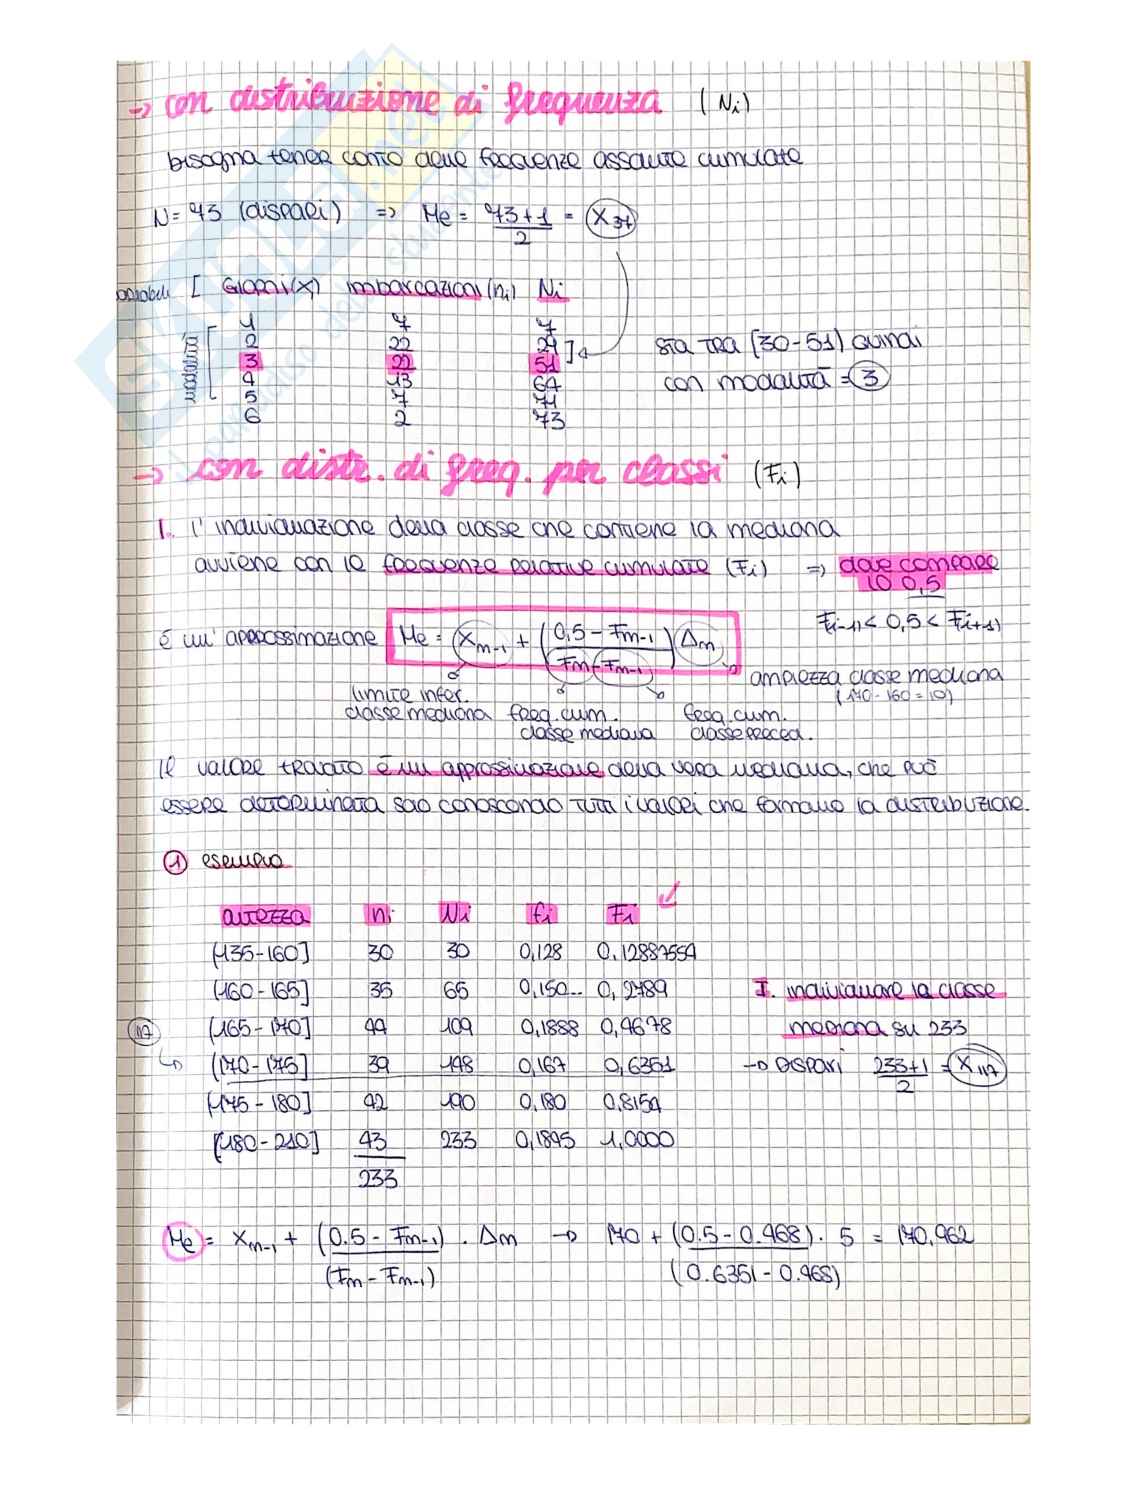 → con distribuzione di frequenza (Ni)
bisogna tener conto delle frequenze assolute cumulate
N = 73 (dispari) => Me = 73+1 / 2 = X37
variabili [ Giorni(x) imbarcazioni(ni) Ni
1 7 7
2 22 29
3 22 51
4 13 64
5 7 71
6 2 73
sta tra (30-51) quindi
con modalità = 3
→ con distr. di freq. per classi (Fi)
1. l'individuazione della classe che contiene la mediana
avviene con le frequenze relative cumulate (Fi) => dove compare
lo 0,5
F(i-1) < 0,5 < F(i+1)
è un'approssimazione Me = Xm-1 + (0,5 - Fm-1 / Fm - Fm-1) Δm
ampiezza classe mediana
(170-160=10)
limite infer.
classe mediana
freq. cum.
classe mediana
freq. cum.
classe preced.
Il valore trovato è un approssimazione della vera mediana, che può
essere determinata solo conoscendo tutti i valori che formano la distribuzione.
1 esempio
altezza ni Ni fi Fi
(135-160] 30 30 0,128 0.12887554
(160-165] 35 65 0,150.. 0,2789
(165-170] 44 109 0,1888 0,4678
117 → (170-175] 39 148 0,167 0,6351
(175-180] 42 190 0,180 0.8154
[180-210] 43 233 0,1845 1,0000
233
I. individuare la classe
mediana su 233
→ Dispari 233+1 / 2 = X117
Me = Xm-1 + (0.5 - Fm-1) / (Fm - Fm-1) . Δm → 170 + (0.5 - 0.468) / (0.6351 - 0.468) . 5 = 170,962